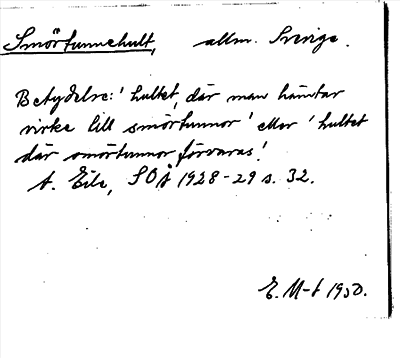 Smörtunnehult, allm. Sverige.
Betydelse: 'hultet, där man hämtar
virke till smörtunnor' eller 'hultet
där smörtunnor förvaras'.
A. Eile, SOÅ 1928-29 s. 32.
E. M-t 1950.